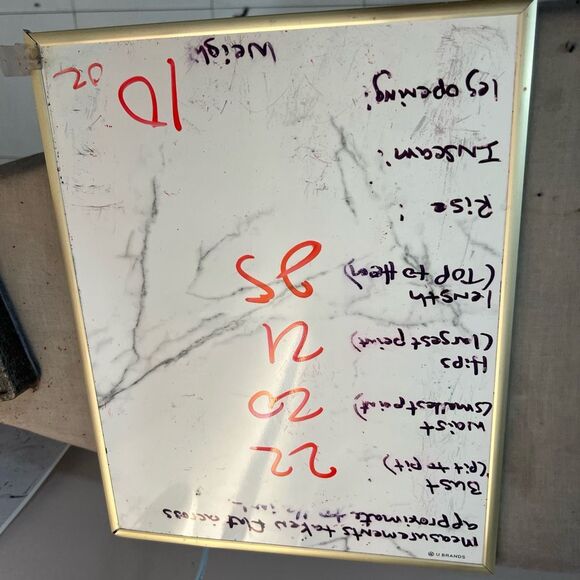 Measurements taken flat across
approximate to the
Bust
(pit to pit) 22
waist
(smallest point) 20
Hips
(largest point) 21
length
(TOP to Hem)
Rise :
Inseam :
leg opening :
Weigh
10 oz
U BRANDS